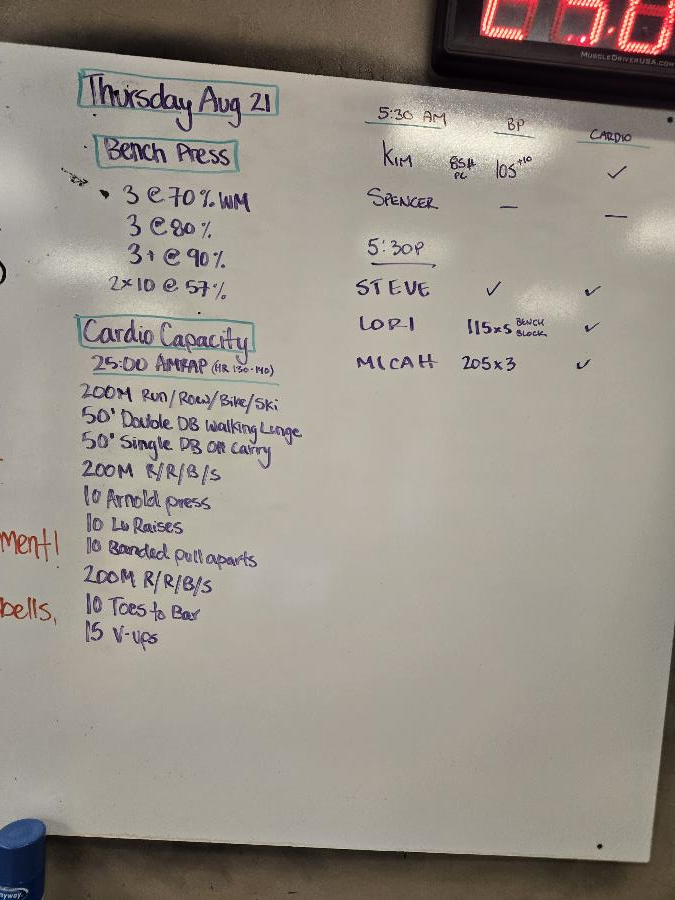 MUSCLEDRIVERUSA.COM
Thursday Aug 21
Bench Press
3 @ 70% WM
3 @ 80%
3+ @ 90%
2x10 @ 57%
Cardio Capacity
25:00 AMRAP (HR 130-140)
200M Run/Row/Bike/Ski
50' Double DB Walking Lunge
50' Single DB OH Carry
200M R/R/B/S
10 Arnold press
10 Lu Raises
10 Banded pull aparts
200M R/R/B/S
10 Toes to Bar
15 V-ups
5:30 AM BP CARDIO
KIM 85# PC 105+10 ✓
SPENCER — —
5:30P
STEVE ✓ ✓
LORI 115x5 BENCH BLOCK ✓
MICAH 205x3 ✓
ment!
bells,